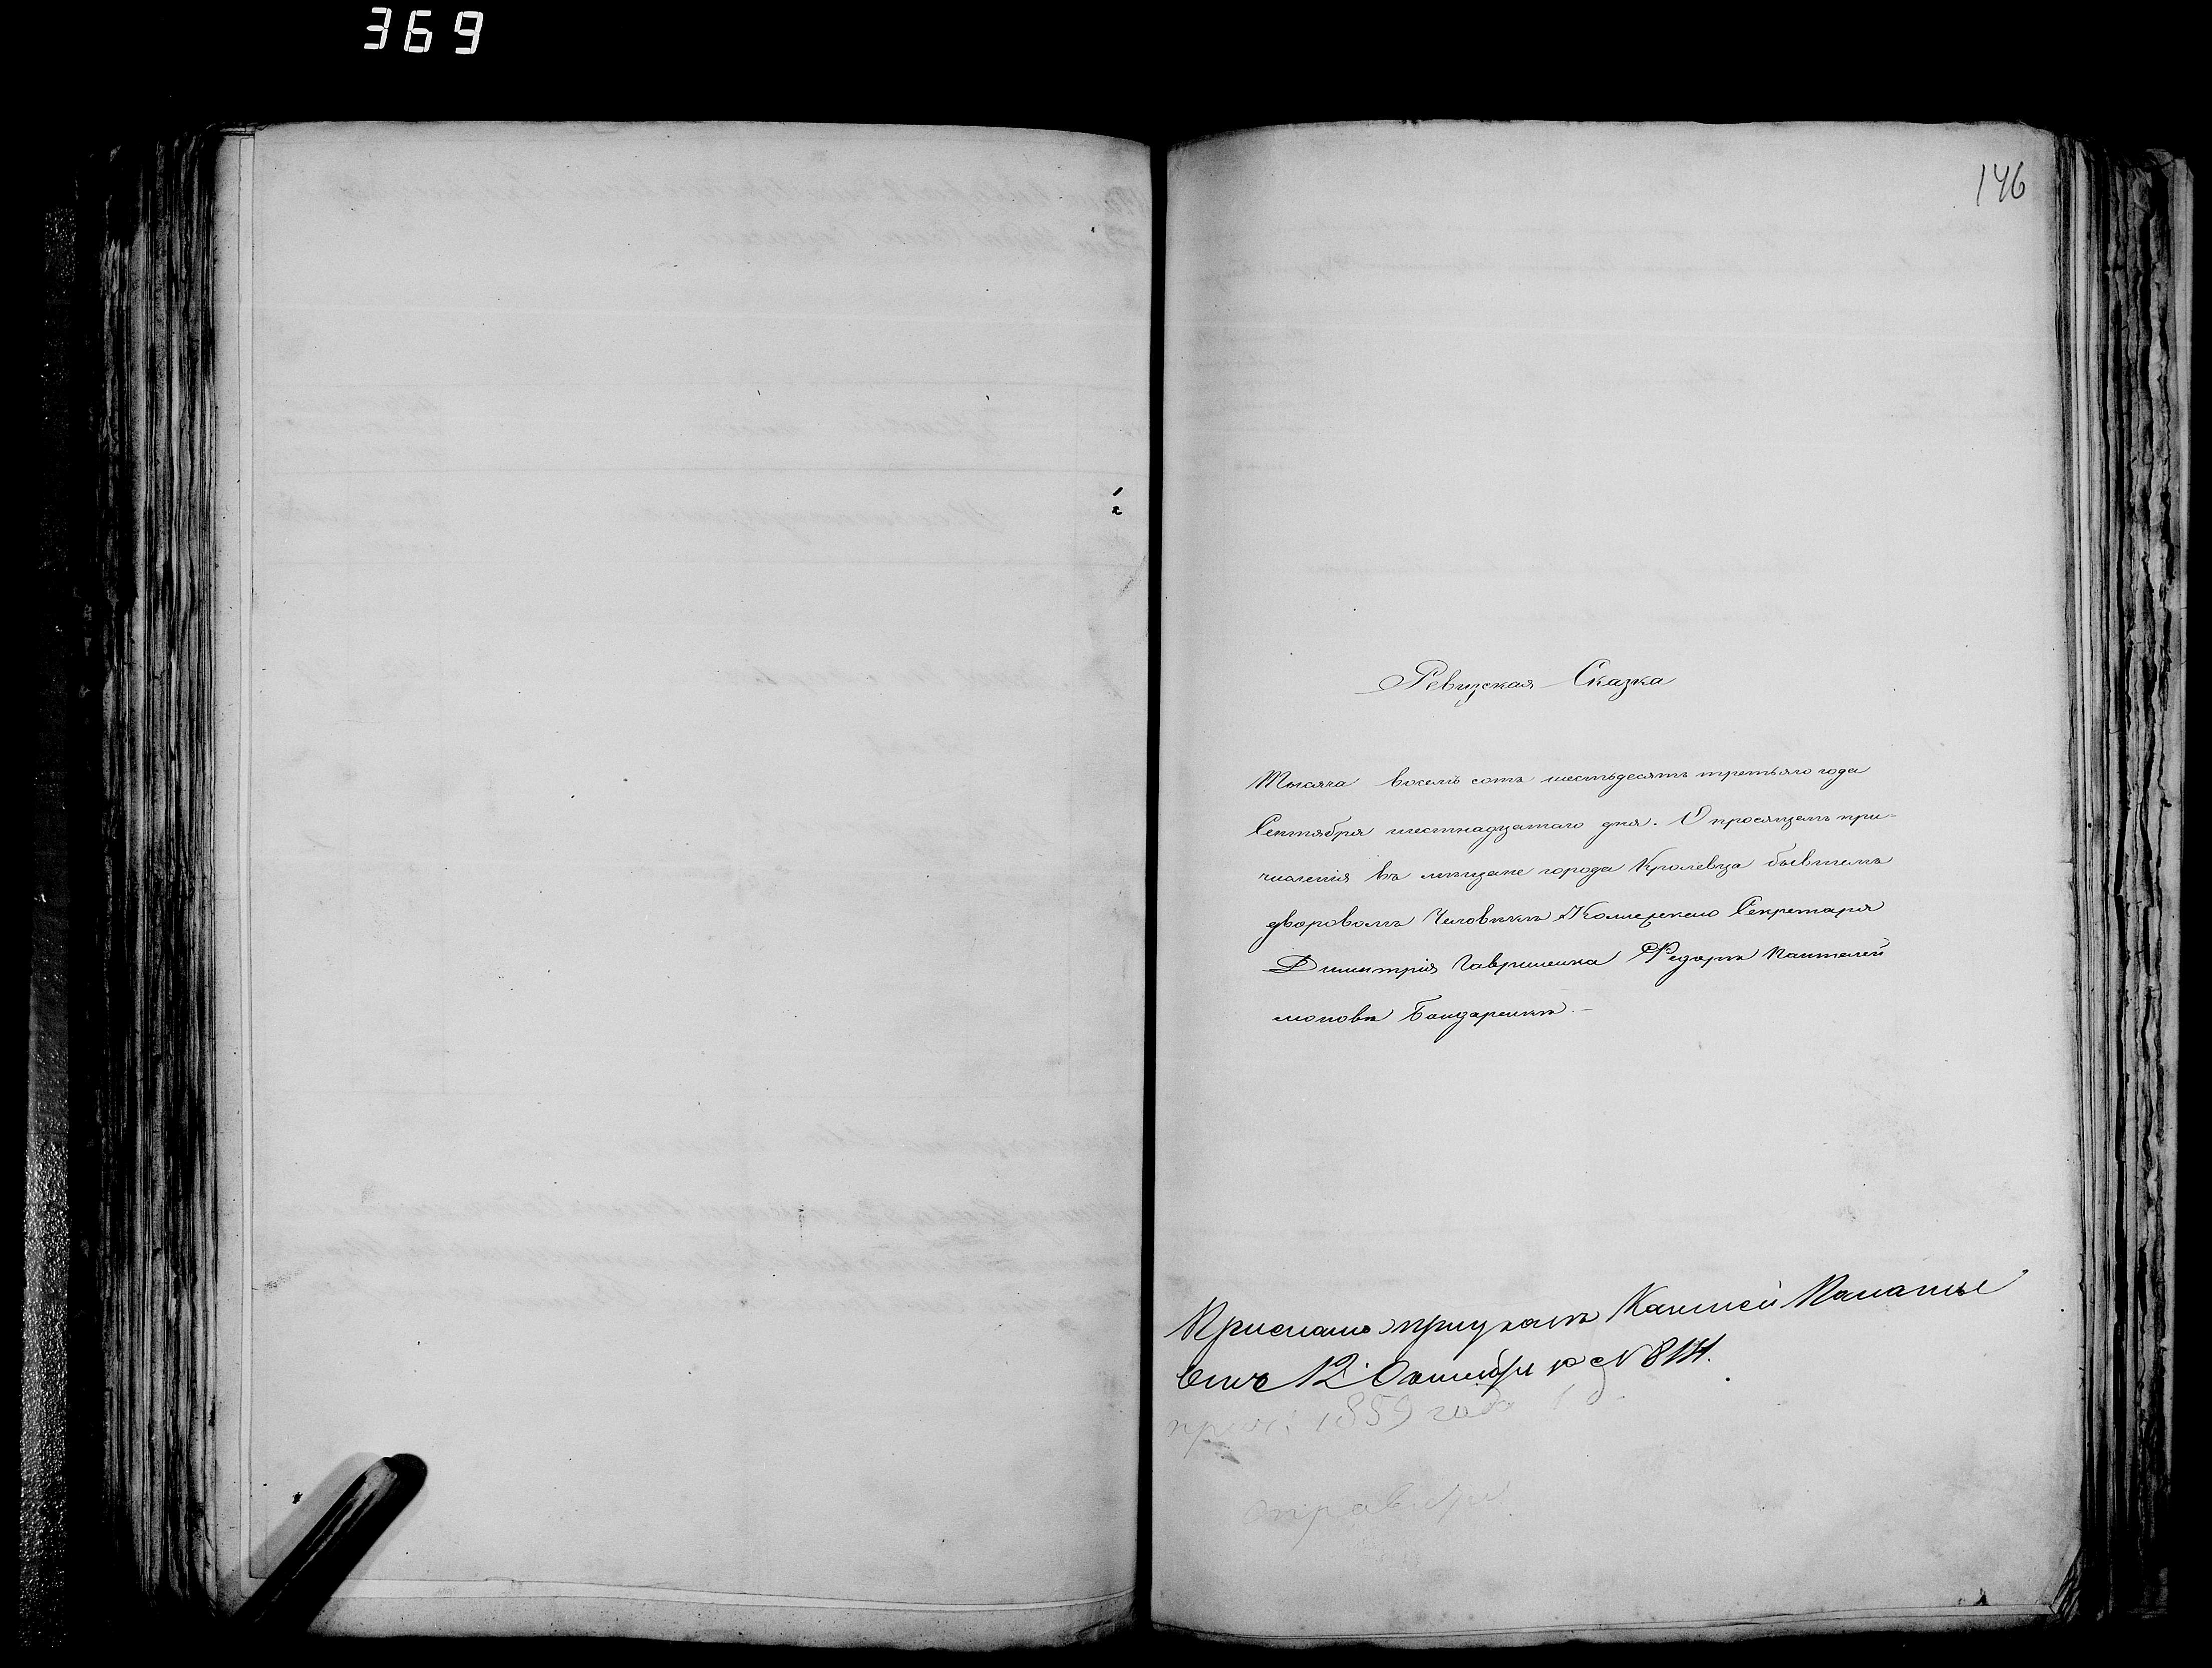 369
146
Ревизская Сказка
Тысяча восемь сотъ шестьдесятъ третьяго года
Сентября шестнадцатаго дня. О просящемъ при-
численія въ мещане города Кролевца бывшемъ
дворовомъ Человѣкѣ Коллежскаго Секретаря
Димитрія Гавриленка Ѳедорѣ Пантелей
моновѣ Бондаренкѣ. -
Прислано при указѣ Казенной Палаты
отъ 12 Октября за № 8114.
1859 года